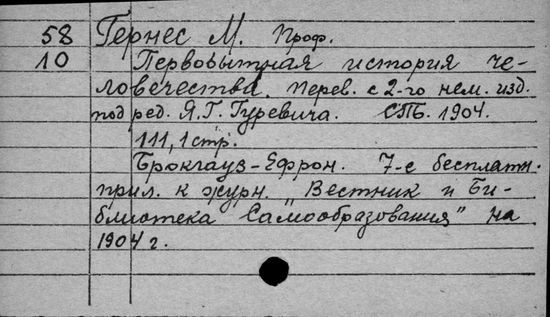 58 Гернес М. Проф.
10 Первобытная история че-
ловечества. Перев. с 2-го нем. изд.
под ред. Я.Г. Гуревича. СПБ. 1904.
111,1 стр.
Брокгауз-Ефрон. 7-е бесплатн.
прил. к журн. "Вестник и Би-
блиотека Самообразования" на
1904 г.